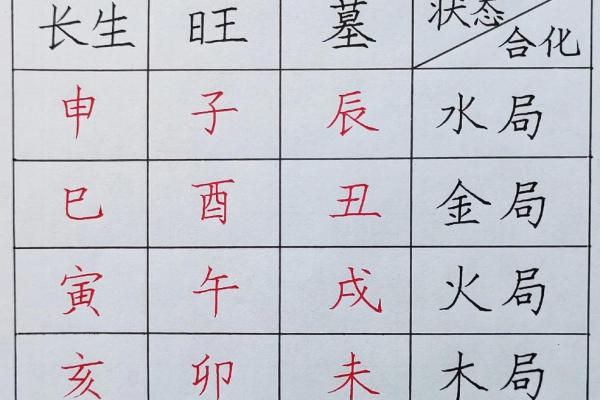 长生 旺 墓 状态 合化
申 子 辰 水局
巳 酉 丑 金局
寅 午 戌 火局
亥 卯 未 木局